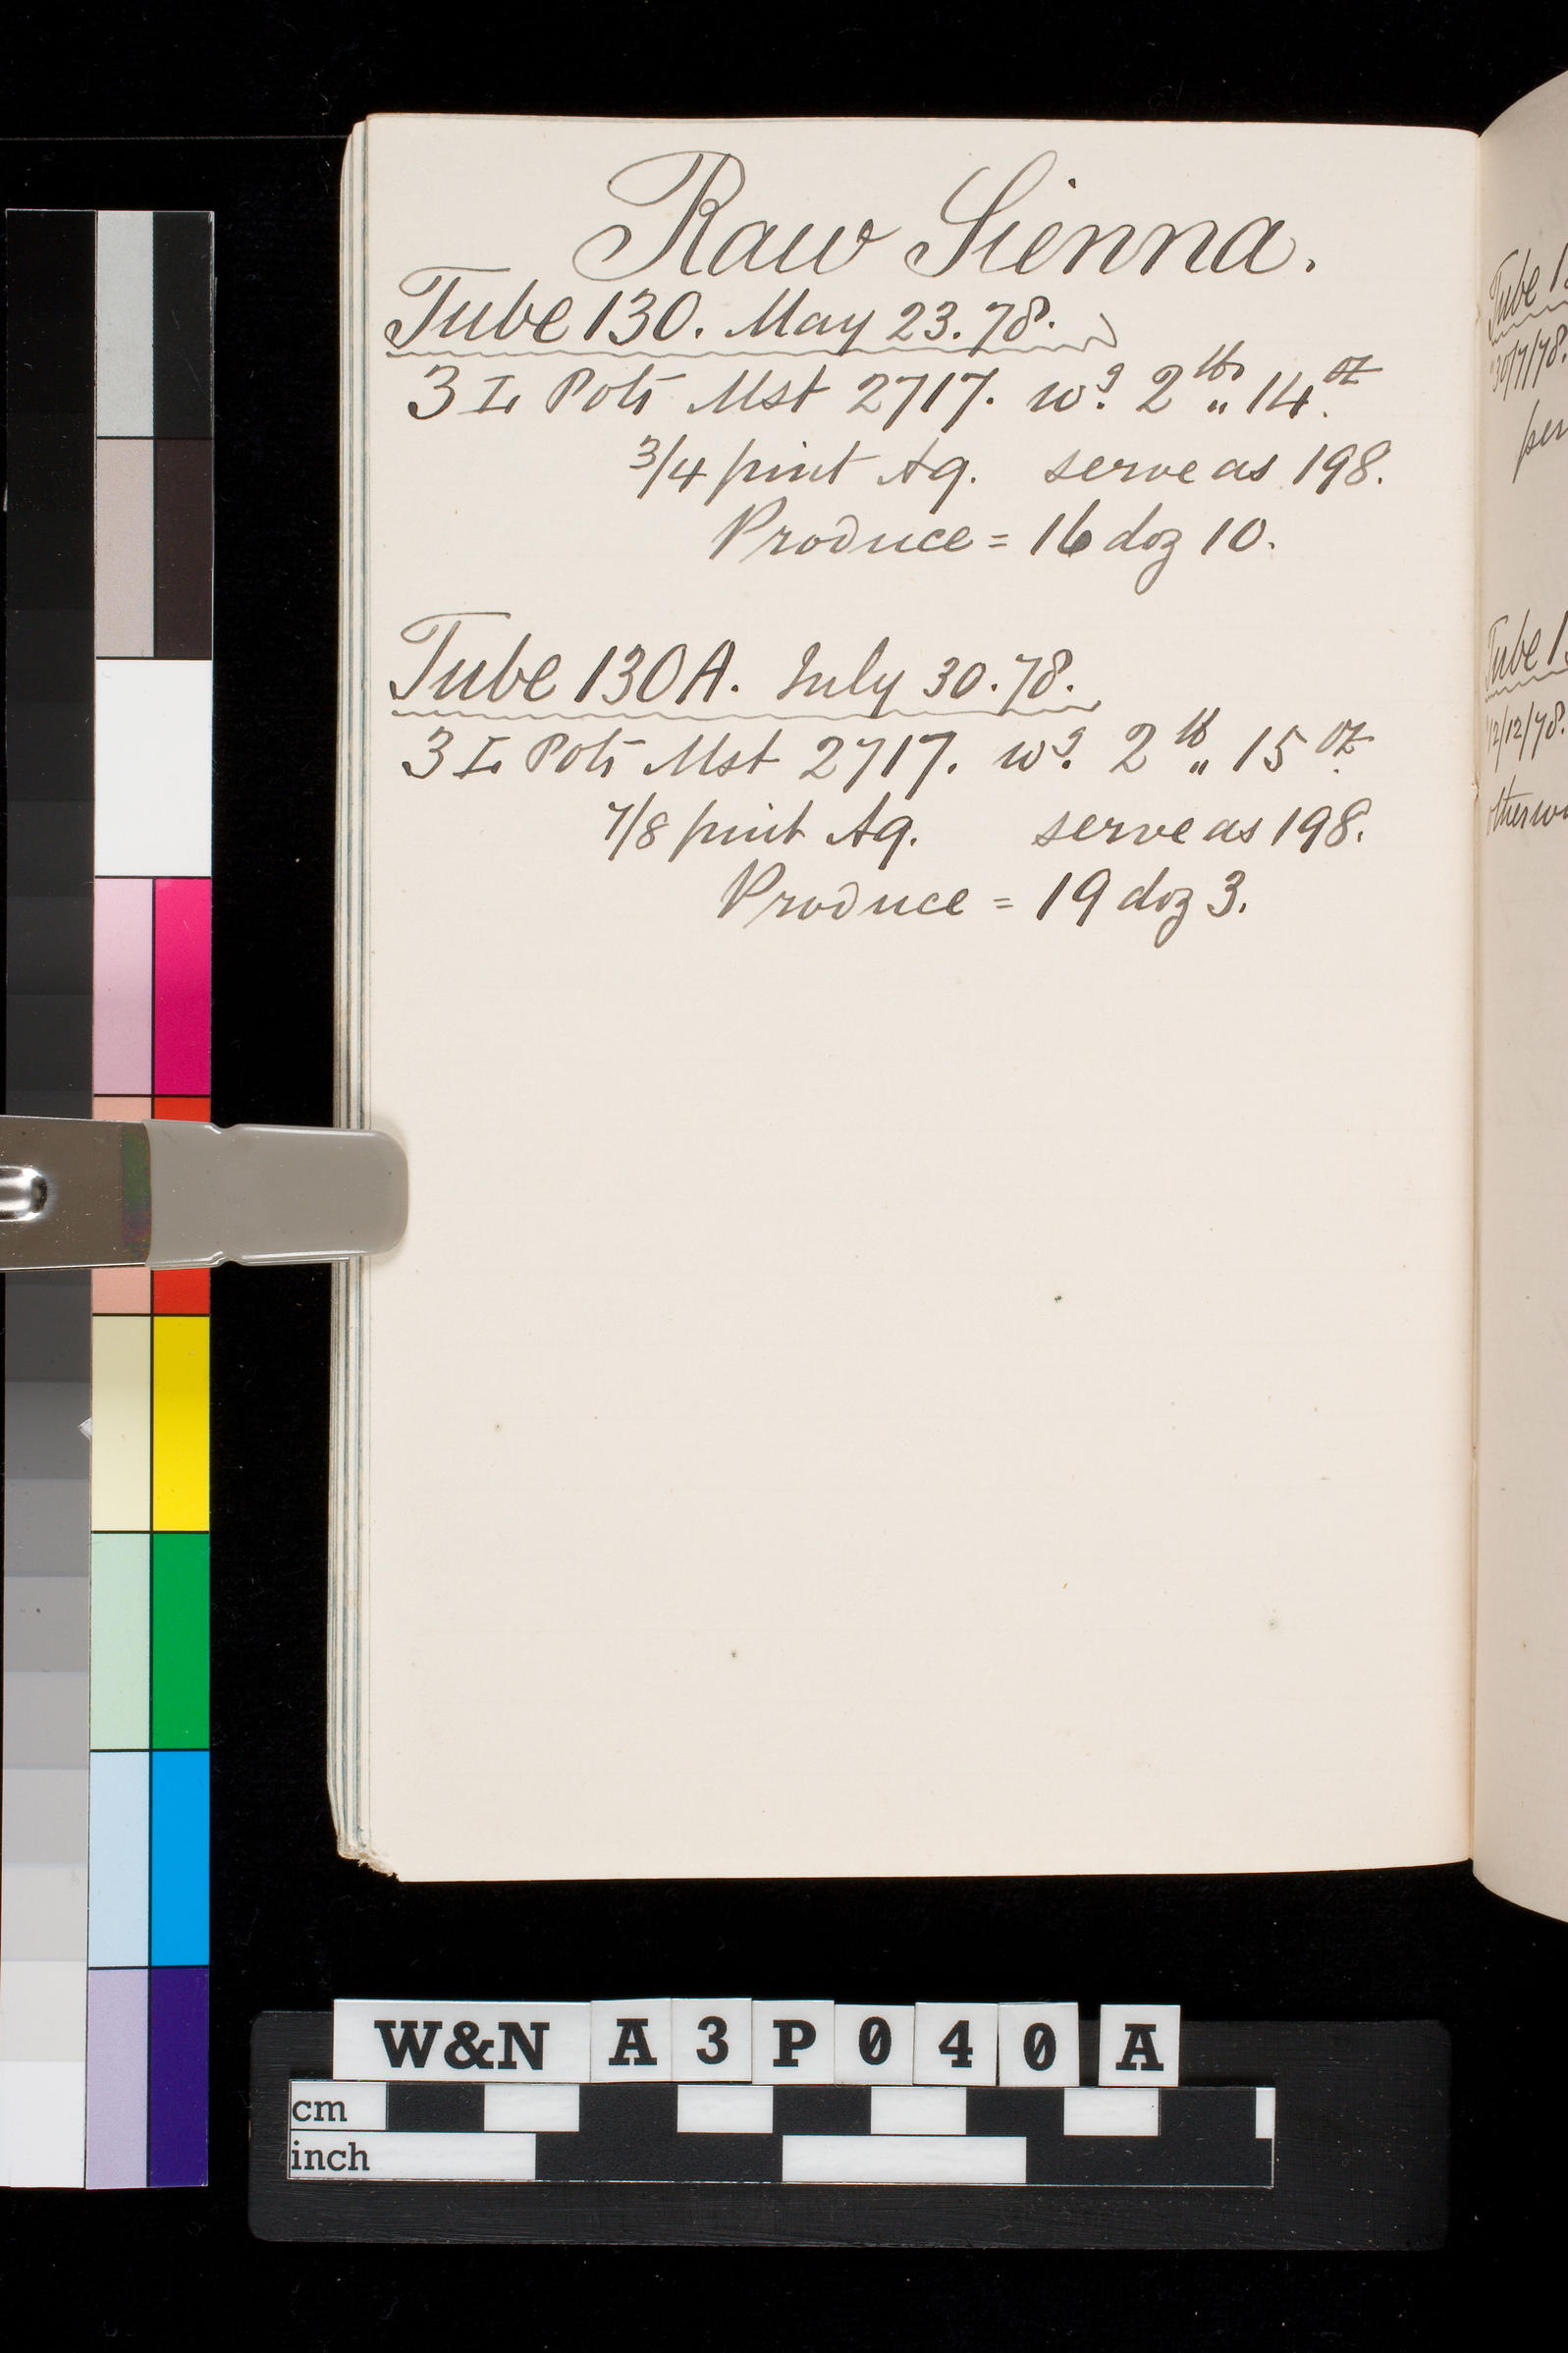 Raw Sienna.
Tube 130. May 23. 78.
3 I. Pots Mst 2717. wg. 2 lbs „ 14 oz.
3/4 pint Aq. serve as 198.
Produce = 16 doz 10.
Tube 130A. July 30. 78.
3 I. Pots Mst 2717. wg. 2 lb „ 15 oz.
7/8 pint Aq. serve as 198.
Produce = 19 doz 3.
Tube 1
30/7/78.
per
Tube 1
12/12/78.
W&N A3P040 A
cm
inch